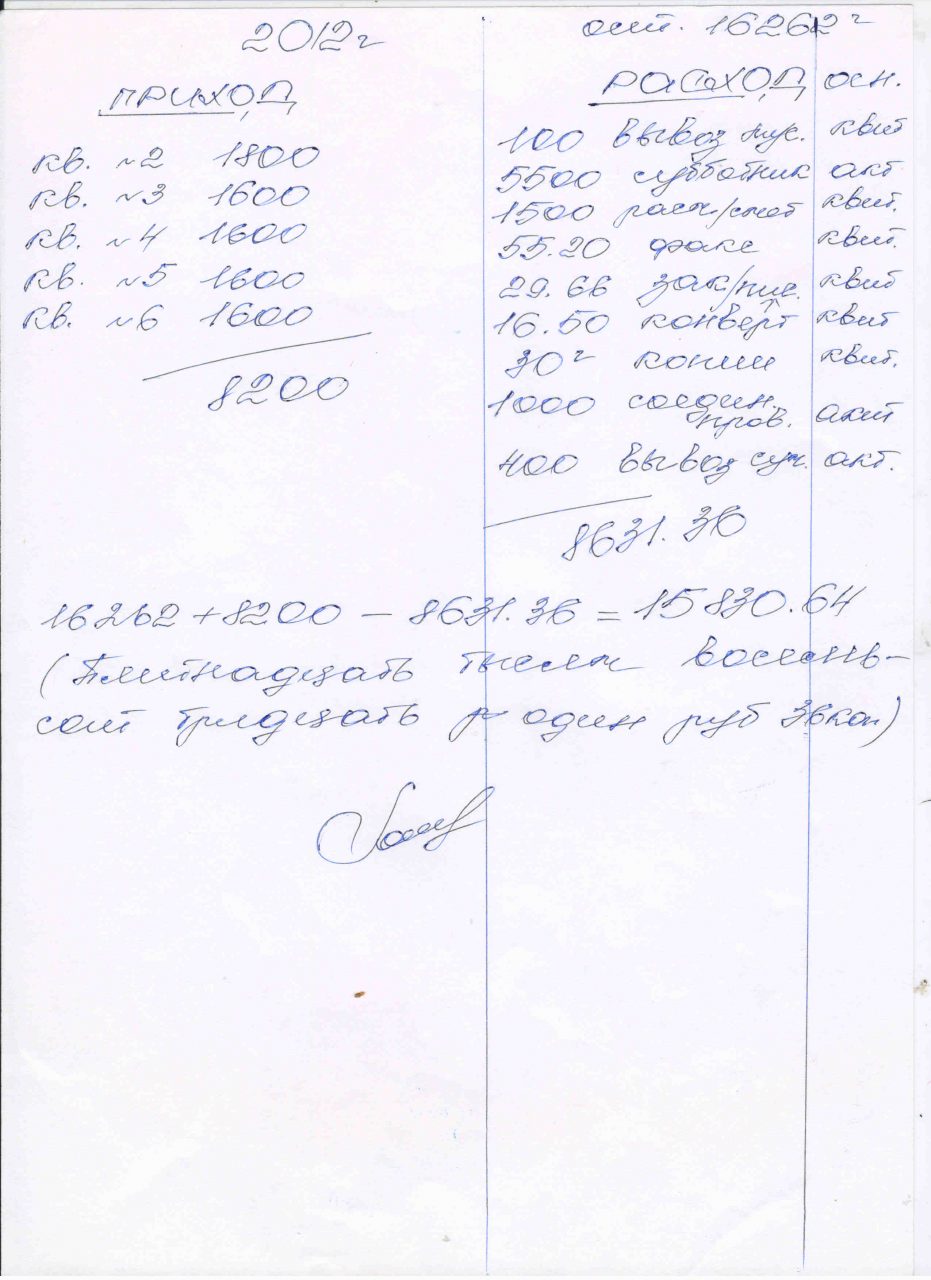 2012г
ПРИХОД
кв. №2 1800
кв. №3 1600
кв. №4 1600
кв. №5 1600
кв. №6 1600
8200
ост. 16262 г
РАСХОД осн.
100 вывоз мус. квит
5500 субботник акт
1500 расч/счет квит.
55.20 факс квит.
29.66 зак/пис. квит
16.50 конверт квит
30 г копии квит.
1000 соедин. пров. акт
400 вывоз суч. акт.
8631.36
16262 + 8200 – 8631.36 = 15830.64
(Пятнадцать тысяч восемь-
сот тридцать один руб 36 коп)